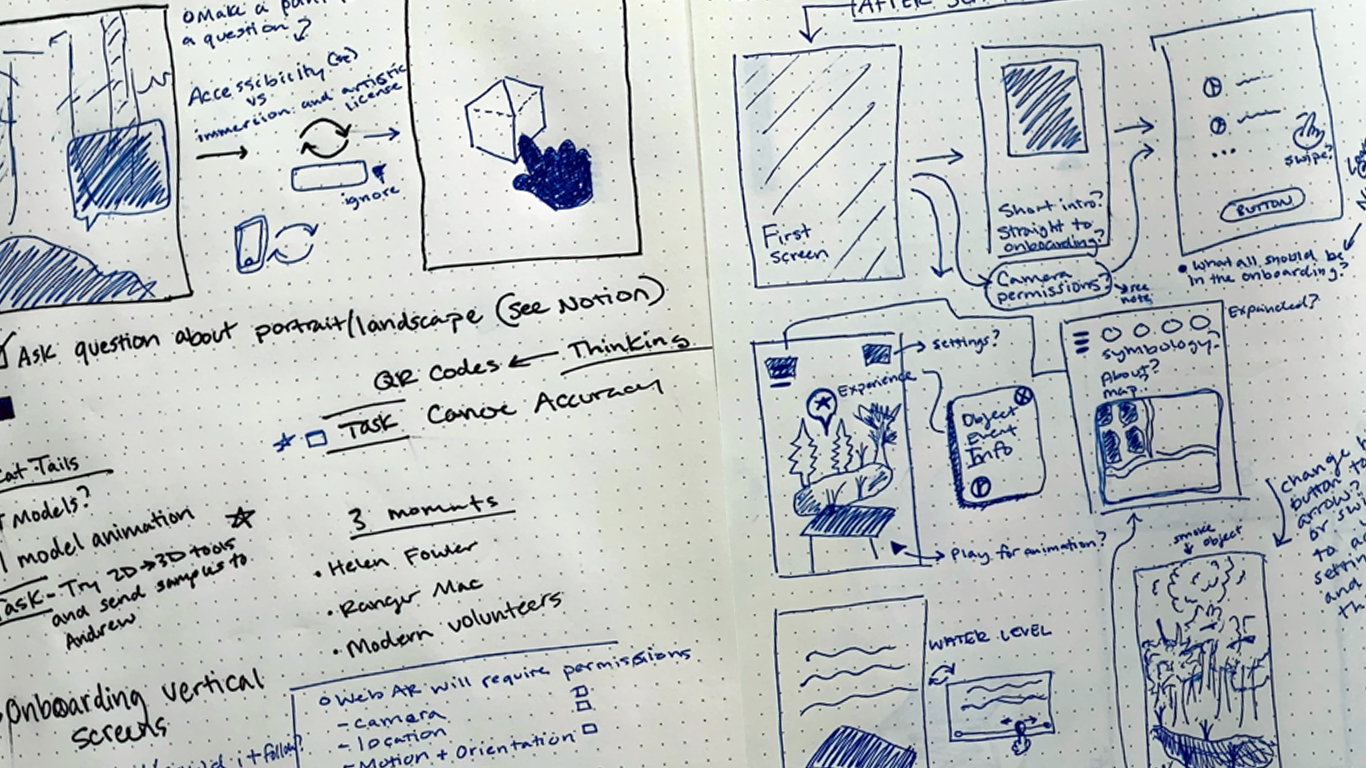 Make a
a question?
Accessibility
vs
immersion and artistic
license
ignore
Ask question about portrait/landscape (see Notion)
QR Codes ← Thinking
Task Canoe Accuracy
Cat-Tails
Models?
1 model animation
Task - Try 2D → 3D tools
and send samples to
Andrew
3 moments
• Helen Fowler
• Ranger Mac
• Modern volunteers
Onboarding vertical
screens
Web AR will require permissions
- camera
- location
- Motion + Orientation
AFTER
First
screen
Short intro?
Straight to
onboarding?
Camera
permissions?
see
note
swipe?
BUTTON
• What all should be
in the onboarding?
Settings?
Experience
Object
Event
Info
Play for animation?
Expanded?
symbology
About?
map
change
button to
arrow?
or
to
and
smoke
object
WATER LEVEL